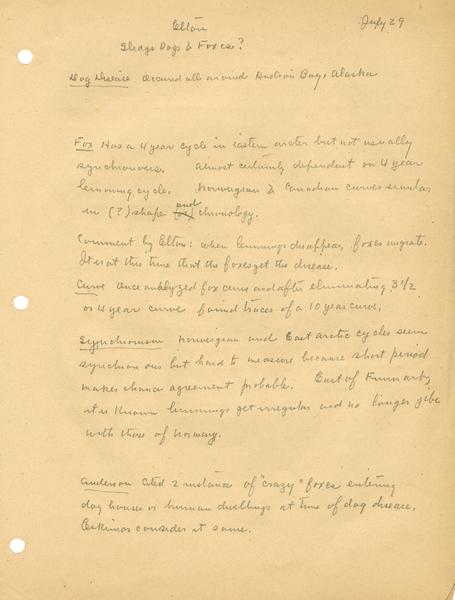 Elton
July 29
Sledge Dogs & Foxes?
Dog Disease occured all around Hudson Bay, Alaska
Fox Has a 4 year cycle in eastern arctic but not usually
synchronous. almost certainly dependent on 4 year
lemming cycle. Norwegian & Canadian curves similar
in (?) shape and chronology.
Comment by Elton: when lemmings disappear, foxes migrate.
It is at this time that the foxes get the disease.
Curve Once analyzed fox curve and after eliminating 3 1/2
or 4 year curve found traces of a 10 year curve.
Synchronism Norwegian and East arctic cycles seem
synchronous but hard to measure because short period
makes chance agreement probable. East of Finmark,
it is known lemmings get irregular and no longer jibe
with those of Norway.
Anderson cited 2 instances of "crazy" foxes entering
dog houses or human dwellings at time of dog disease.
Eskimos consider it same.